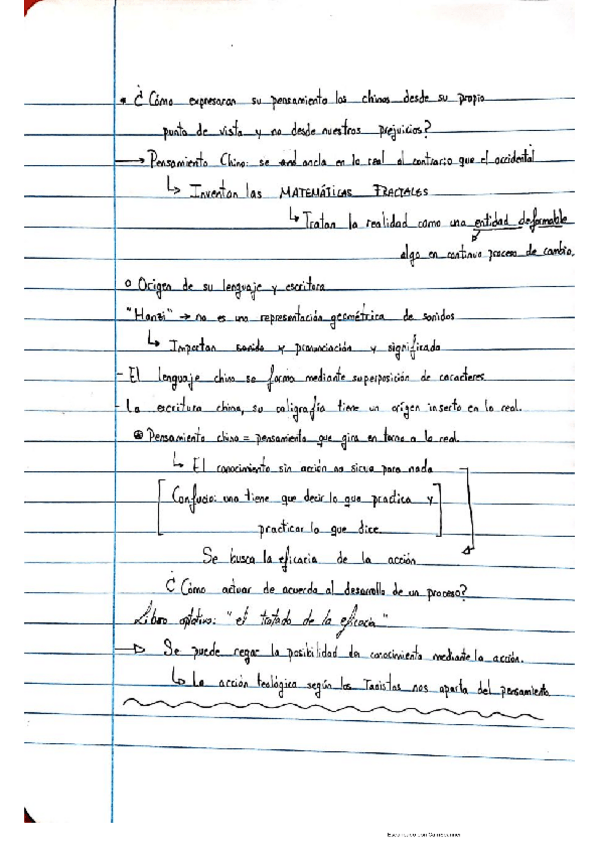 • ¿Cómo expresaran su pensamiento los chinos desde su propio
punto de vista y no desde nuestros prejuicios?
→ Pensamiento Chino: se ancla en lo real al contrario que el occidental
↳ Inventan las MATEMÁTICAS FRACTALES
↳ Tratan la realidad como una entidad deformable
algo en continuo proceso de cambio.
o Origen de su lenguaje y escritura
"Hanzi" → no es una representación geométrica de sonidos
↳ Importan sonido y pronunciación y significado
- El lenguaje chino se forma mediante superposición de caracteres.
- La escritura china, su caligrafía tiene un origen inserto en lo real.
Pensamiento chino = pensamiento que gira en torno a lo real.
↳ El conocimiento sin acción no sirve para nada
[Confucio: uno tiene que decir lo que practica y
practicar lo que dice]
Se busca la eficacia de la acción
¿Cómo actuar de acuerdo al desarrollo de un proceso?
Libro optativo: "el tratado de la eficacia"
→ Se puede negar la posibilidad de conocimiento mediante la acción.
↳ La acción teológica según los Taoistas nos aparta del pensamiento
Escaneado con CamScanner